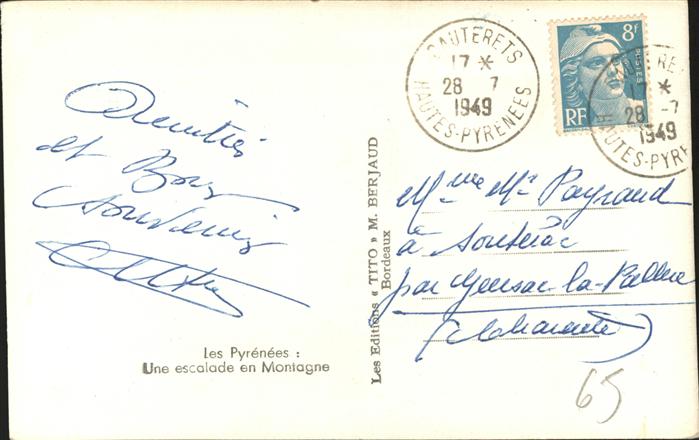 Amitiés
et Bons
Souvenirs
Les Pyrénées :
Une escalade en Montagne
Les Editions « TITO » M. BERJAUD
Bordeaux
CAUTERETS
17 *
28 7
1949
HAUTES-PYRENEES
8f
POSTES
RF
17 *
28 -7
1949
HAUTES-PYRE
Mme Mr Payraud
à
par Gensac-la-Pallue
(Charente)
65